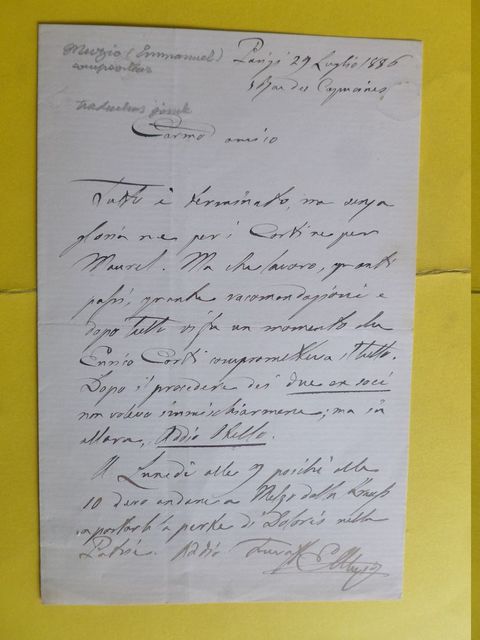 Muzio (Emmanuel)
compositor
Parigi 29 Luglio 1886
Rue des Capucines
Carmo amico
Tutto è terminato, ma senza
gloria ne per i Corti ne per
Maurel. Ma che lavoro, quanti
passi, quante racomandazioni e
dopo tutto vi fu un momento che
Enrico Corti comprometteva il tutto.
Dopo il procedere dei due ex soci
non volevo immischiarmene; ma in
allora, Addio Otello.
Lunedì alle 9 poichè alla
10 devo andare a dalla Krauss
a portarle la parte di Dolorès nella
Patrie. Addio EMuzio